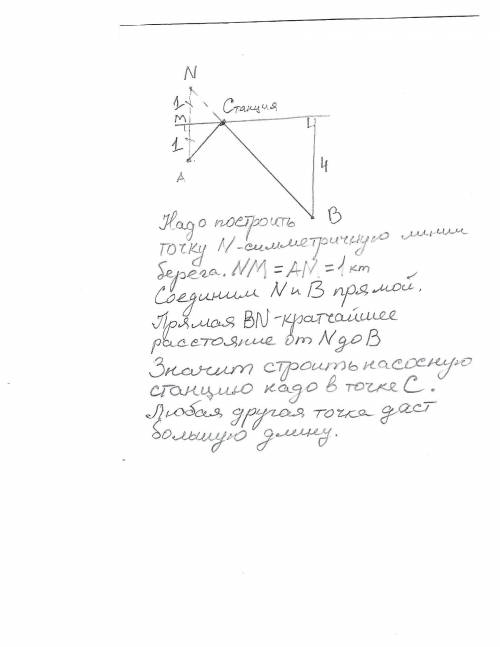 N
1
Станция
M
1
L
4
A
B
Надо построить
точку N-симметричную линии
берега. NM = AN = 1 км
Соединим N и B прямой.
Прямая BN-кратчайшее
расстояние от N до B
Значит строить насосную
станцию надо в точке C.
Любая другая точка даст
большую длину.